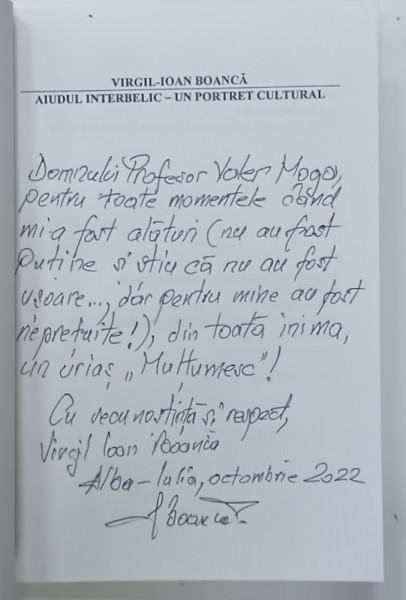 VIRGIL-IOAN BOANCĂ
AIUDUL INTERBELIC – UN PORTRET CULTURAL
Domnului Profesor Valer Moga,
pentru toate momentele când
mi-a fost alături (nu au fost
puține și știu că nu au fost
ușoare..., dar pentru mine au fost
neprețuite!), din toată inima,
un uriaș „Mulțumesc"!
Cu recunoștință și respect,
Virgil Ioan Boancă
Alba-Iulia, octombrie 2022
Boancă